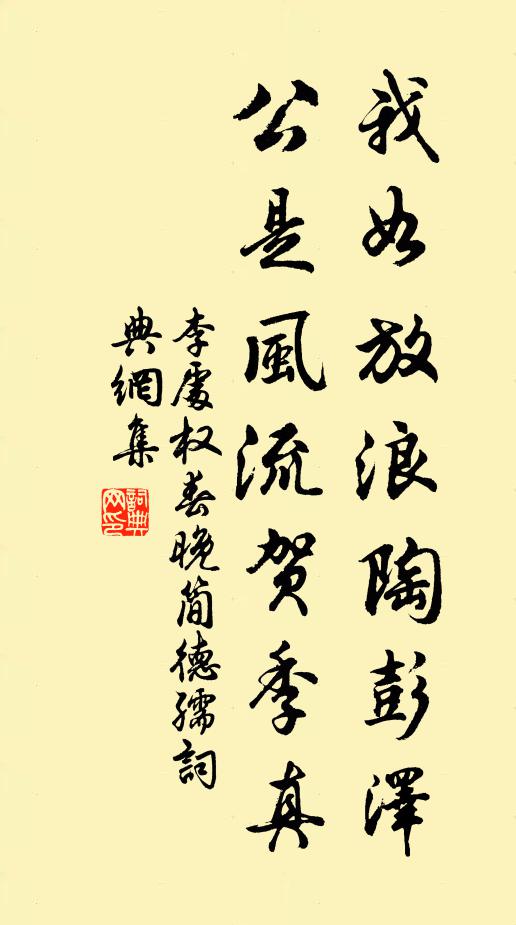 我如放浪陶彭澤
公是風流賀季真
李處权春晚簡德孺詞
典網集
詞典
网印